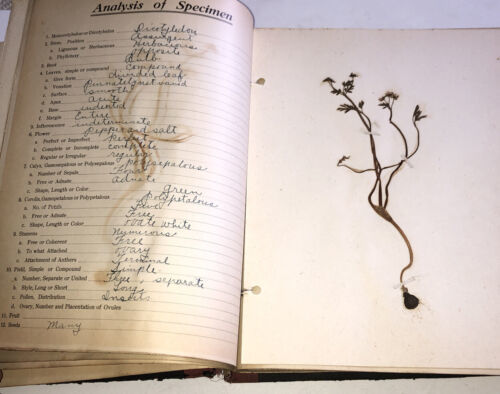 Analysis of Specimen
1. Monocotyledon or Dicotyledon Dicotyledon
2. Stem, Position Assurgent
a. Ligneous or Herbaceous Herbaceous
b. Phyllotaxy Opposite
3. Root Bulb
4. Leaves, simple or compound Compound
a. Give form divided leaf
b. Venation Pinnately net vand
c. Surface smooth
d. Apex Acute
e. Base indented
f. Margin Entire
5. Inflorescence indeterminate
6. Flower Pepper and salt
a. Perfect or Imperfect Perfect
b. Complete or Incomplete complete
c. Regular or Irregular regular
7. Calyx, Gamosepalous or Polysepalous Polysepalous
a. Number of Sepals Four
b. Free or Adnate adnate
c. Shape, Length or Color green
8. Corolla, Gamopetalous or Polypetalous Polypetalous
a. No. of Petals Five
b. Free or Adnate Free
c. Shape, Length or Color ovate white
9. Stamens Numerous
a. Free or Coherent Free
b. To what Attached Ovary
c. Attachment of Anthers Terminal
10. Pistil, Simple or Compound Simple
a. Number, Separate or United Free, separate
b. Style, Long or Short Long
c. Pollen, Distribution Insects
d. Ovary, Number and Placentation of Ovules
11. Fruit
12. Seeds Many